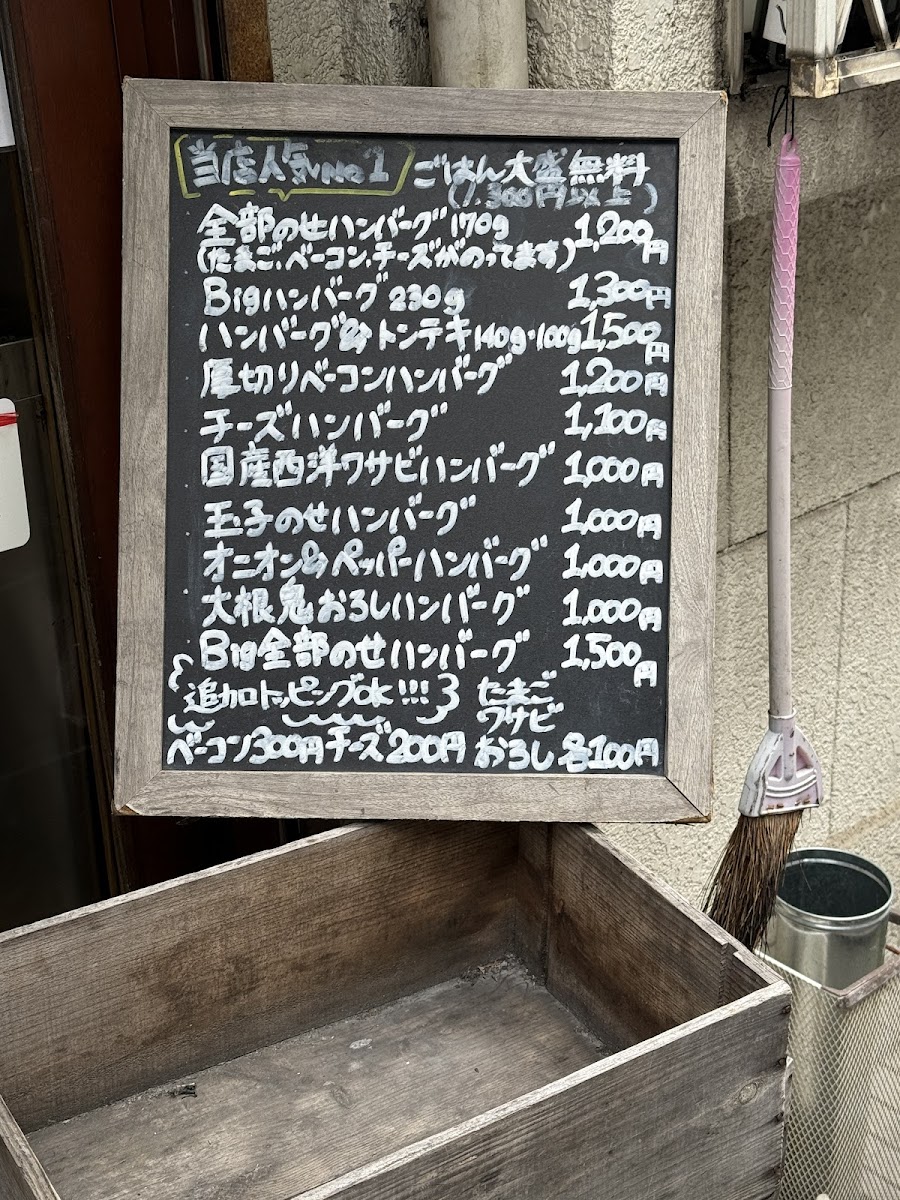 当店人気No1 ごはん大盛無料
(1,300円以上)
全部のせハンバーグ170g 1,200円
(たまご、ベーコン、チーズがのってます)
Bigハンバーグ230g 1,300円
ハンバーグ&トンテキ140g・100g 1,500円
厚切りベーコンハンバーグ 1,200円
チーズハンバーグ 1,100円
国産西洋ワサビハンバーグ 1,000円
玉子のせハンバーグ 1,000円
オニオン&ペッパーハンバーグ 1,000円
大根鬼おろしハンバーグ 1,000円
Big全部のせハンバーグ 1,500円
追加トッピングok!!! たまご
ワサビ
ベーコン300円チーズ200円 おろし 各100円